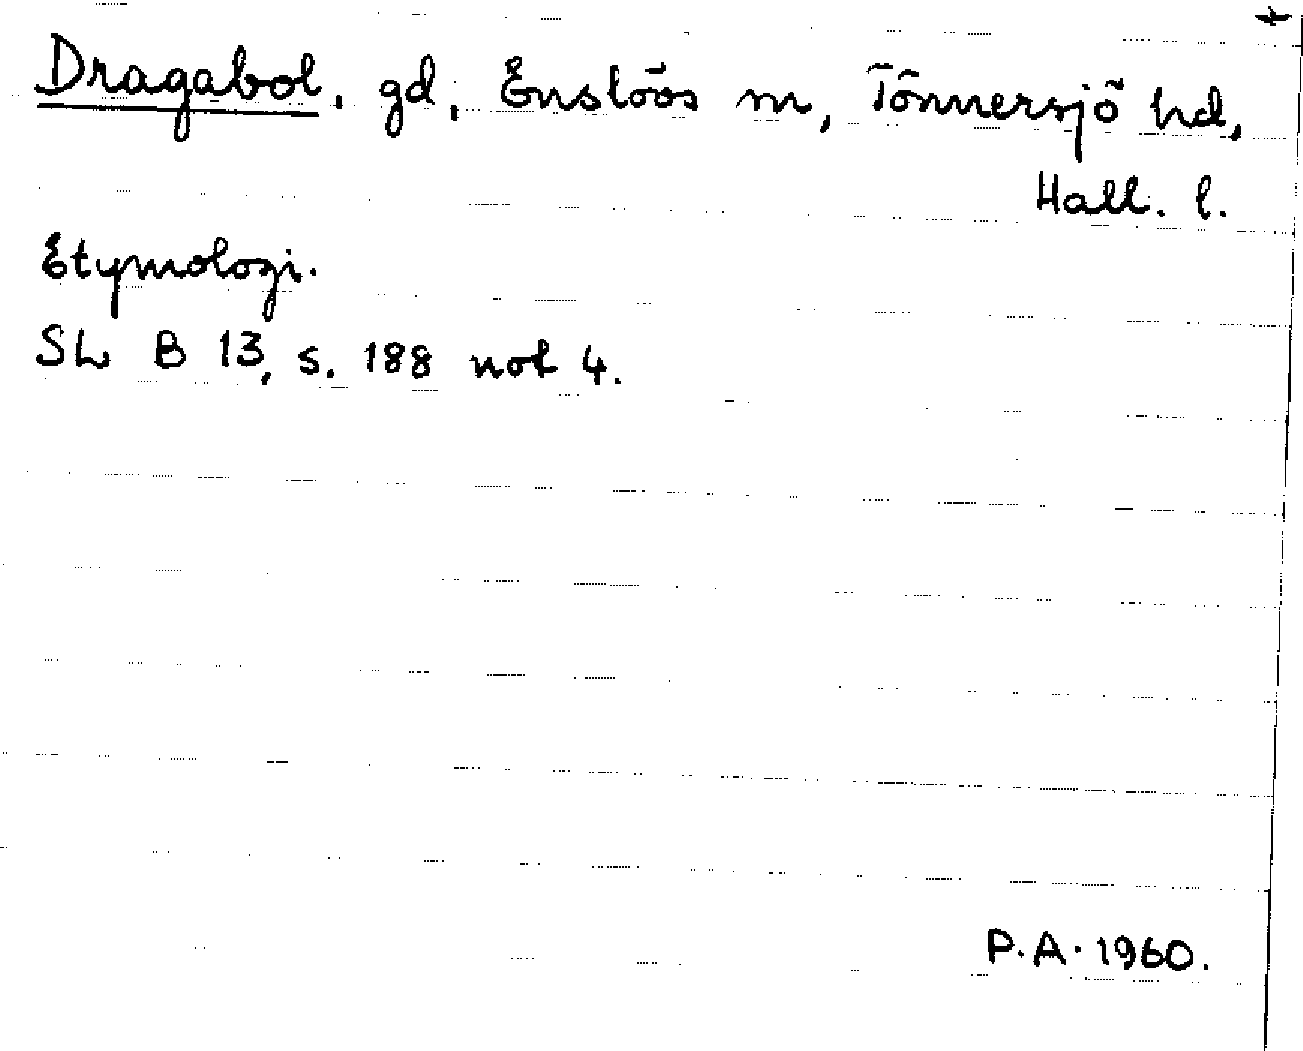 Dragabol, gd, Enslöös m, Tönnersjö hd,
Hall. l.
Etymologi.
SL B 13, s. 188 not 4.
P.A. 1960.